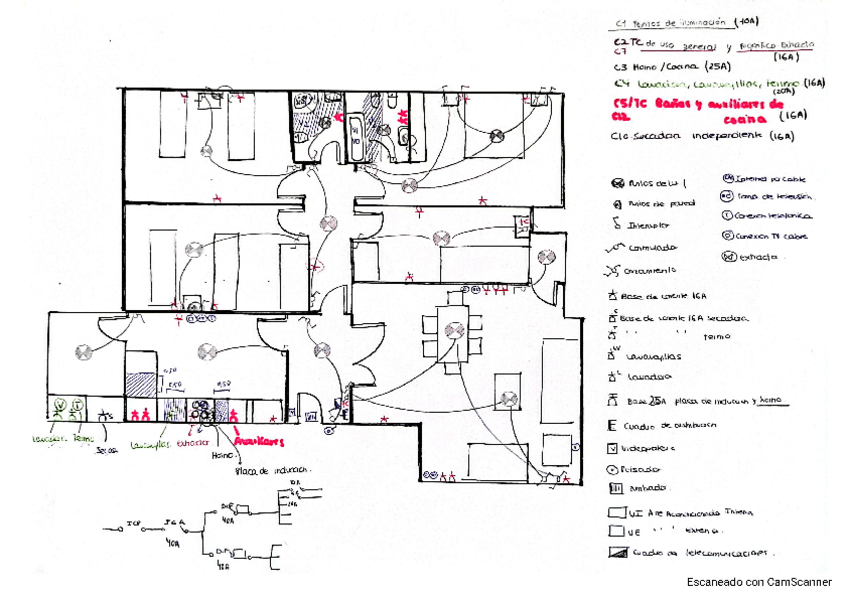 C1 Puntos de iluminación (10A)
C2 TC de uso general y frigorífico Extractor
C7
(16A)
C3 Horno/Cocina (25A)
C4 Lavadora, Lavavajillas, termo (16A)
(20A)
C5/TC Baños y auxiliares de
C12 cocina (16A)
C10 Secadora independiente (16A)
Puntos de luz
Puntos de pared
Interruptor
Conmutador
Cruzamiento
Base de corriente 16A
Base de corriente 16A Secadora
Termo
Lavavajillas
Lavadora
Base 25A placa de inducción y horno
Cuadro de distribución
Videoportero
Pulsador
Zumbador
UI Aire Acondicionado Interna
UE Externa
Cuadro de telecomunicaciones.
Internet por cable
Toma de televisión
Conexión telefónica
Conexión TV cable
Extractor
0,50
0,50
0,50
Lavadora
Termo
Lavavajillas
Extractor
Auxiliares
Horno
Placa de inducción.
ICP
IGA
40A
40A
40A
10A
Escaneado con CamScanner